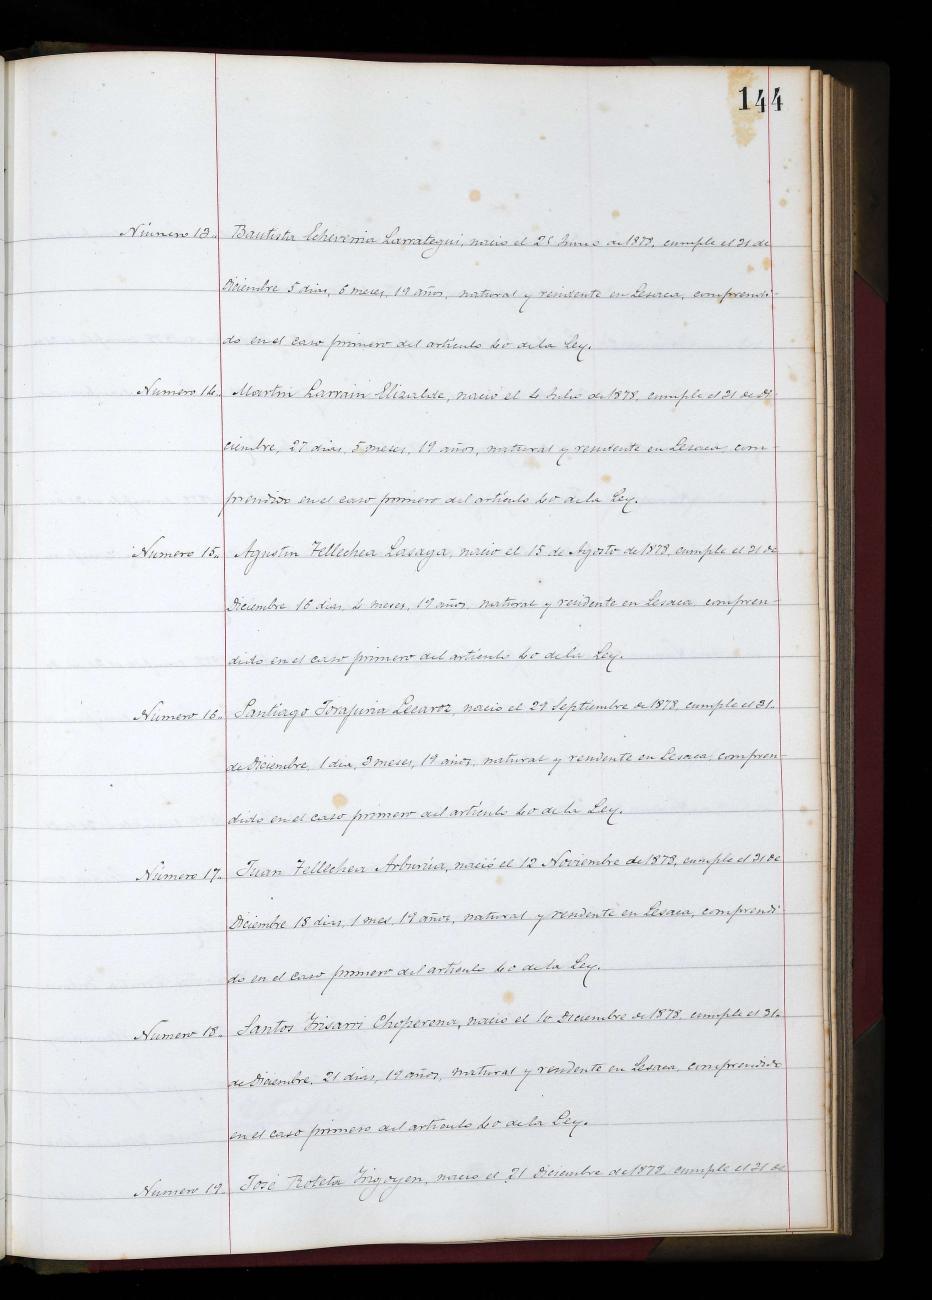 144
Número 13. Bautista Echeverria Larrategui, nació el 25 Junio de 1878, cumple el 31 de
Diciembre 5 dias, 6 meses, 19 años, natural y residente en Lesaca, comprendi-
do en el caso primero del artículo 40 de la Ley.
Numero 14. Martin Larrain Elizalde, nació el 4 Julio de 1878, cumple el 31 de Di-
ciembre, 27 dias, 5 meses, 19 años, natural y residente en Lesaca, com-
prendido en el caso primero del artículo 40 de la Ley.
Numero 15. Agustin Tellechea Lasaga, nacio el 15 de Agosto de 1878, cumple el 31 de
Diciembre 16 dias, 4 meses, 19 años, natural y residente en Lesaca, compren-
dido en el caso primero del artículo 40 de la Ley.
Numero 16. Santiago Torajuria Lecaroz, nacio el 29 Septiembre de 1878, cumple el 31
de Diciembre, 1 dia, 3 meses, 19 años, natural y residente en Lesaca, compren-
dido en el caso primero del artículo 40 de la Ley.
Numero 17. Juan Tellechea Arburúa, nació el 12 Noviembre de 1878, cumple el 31 de
Diciembre 18 dias, 1 mes, 19 años, natural y residente en Lesaca, comprendi-
do en el caso primero del artículo 40 de la Ley.
Numero 18. Santos Irisarri Choperena, nació el 10 Diciembre de 1878, cumple el 31
de Diciembre, 21 dias, 19 años, natural y residente en Lesaca, comprendido
en el caso primero del artículo 40 de la Ley.
Numero 19. José Roteta Irigoyen, nacio el 31 Diciembre de 1878, cumple el 31 de